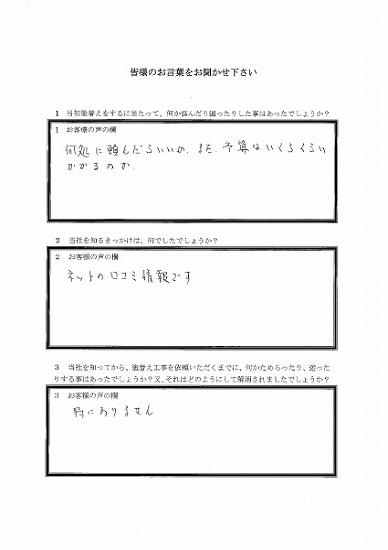 皆様のお言葉をお聞かせ下さい
1 当初塗替えをするに当たって、何か悩んだり困ったりした事はあったでしょうか?
1 お客様の声の欄
何処に頼んだらいいか、また、予算はいくらくらい
かかるのか.
2 当社を知るきっかけは、何でしたでしょうか?
2 お客様の声の欄
ネットの口コミ情報です
3 当社を知ってから、塗替え工事を依頼いただくまでに、何かためらったり、迷った
りする事はあったでしょうか?又、それはどのようにして解消されましたでしょうか?
3 お客様の声の欄
特にありません